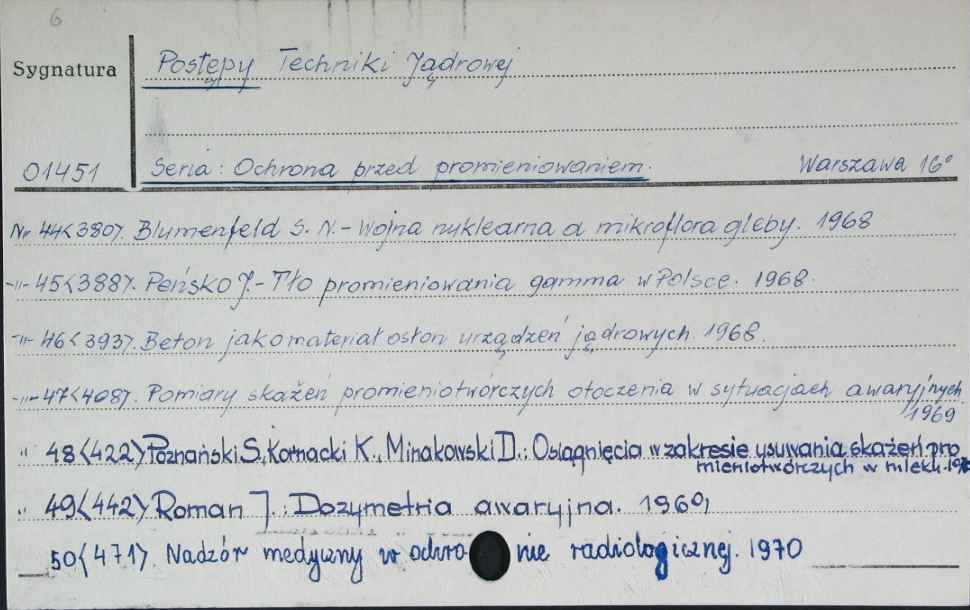 6
Sygnatura
Postępy Techniki Jądrowej
01451 Seria: Ochrona przed promieniowaniem. Warszawa 16°
Nr 44<380>. Blumenfeld S. N. - Wojna nuklearna a mikroflora gleby. 1968
-"- 45<388>. Peńsko J. - Tło promieniowania gamma w Polsce. 1968.
-"- 46<393>. Beton jako materiał osłon urządzeń jądrowych. 1968.
-"- 47<408>. Pomiary skażeń promieniotwórczych otoczenia w sytuacjach awaryjnych
1969
" 48<422> Poznański S., Kornacki K., Minakowski D.: Osiągnięcia w zakresie usuwania skażeń pro
mieniotwórczych w mleku.
" 49<442> Roman J.: Dozymetria awaryjna. 1969
50<471>. Nadzór medyczny w ochronie radiologicznej. 1970